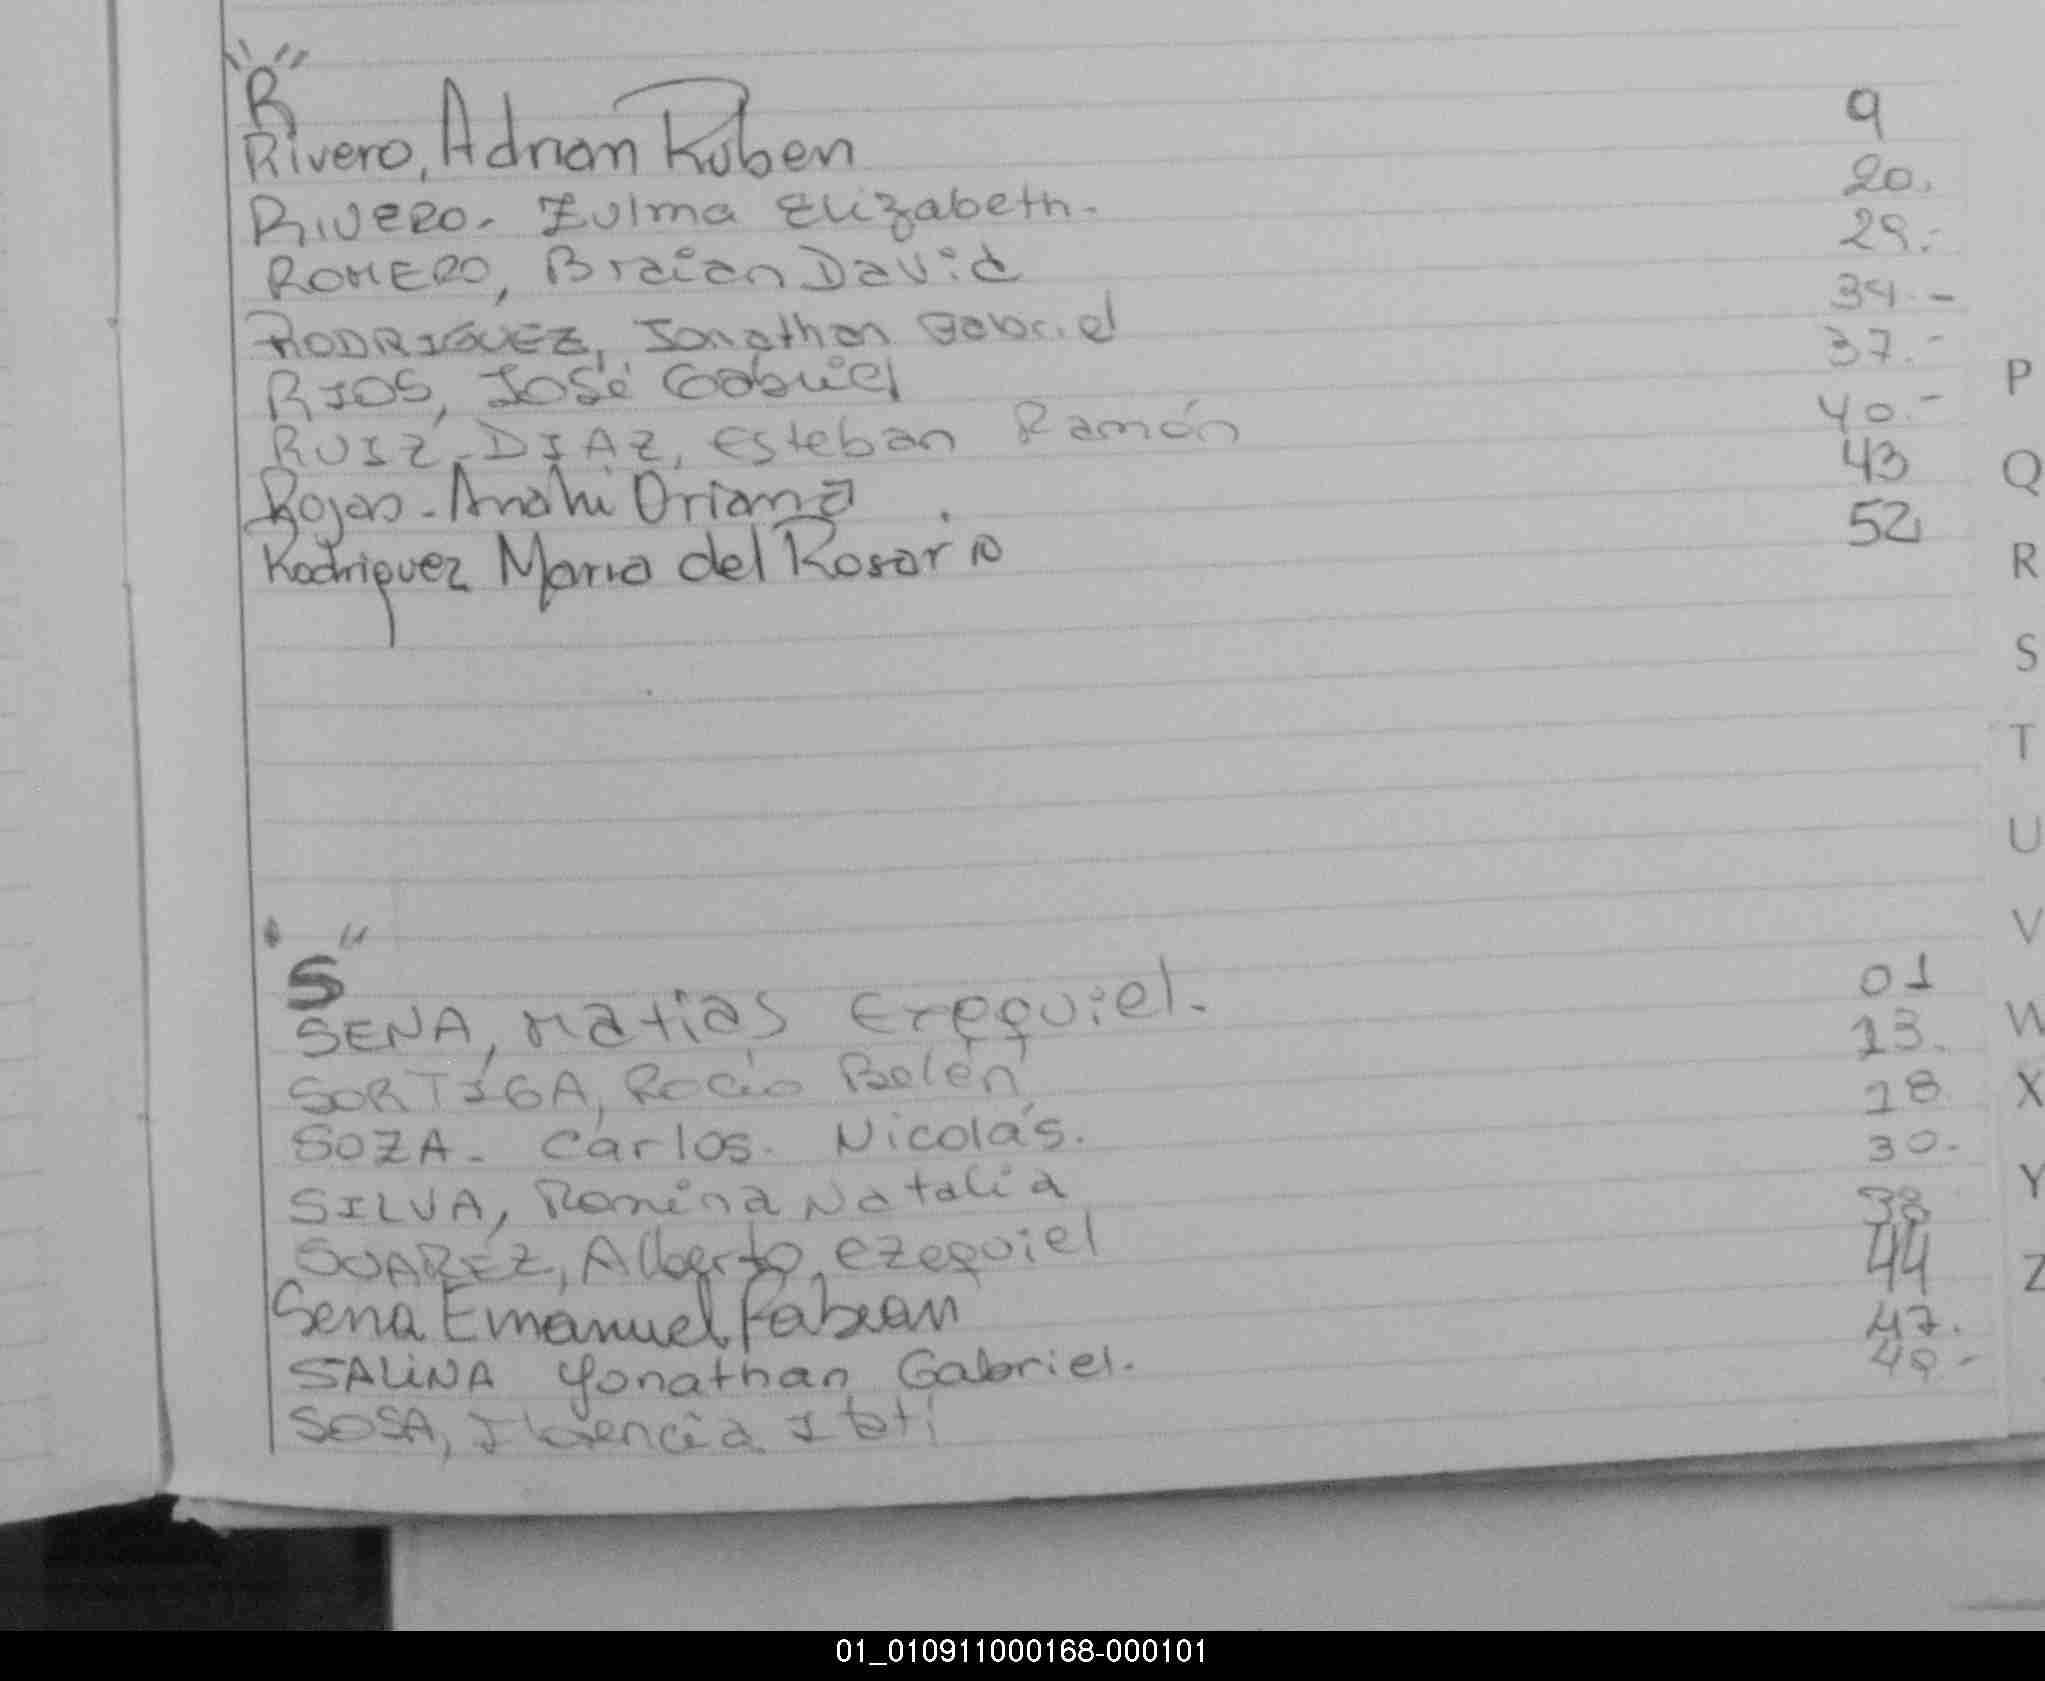 "R"
Rivero, Adrian Ruben 9
RIVERO- Zulma Elizabeth- 20.
ROMERO, Braian David 29.-
RODRIGUEZ, Jonathan Gabriel 34.-
RIOS, José Gabriel 37.-
RUIZ-DIAZ, Esteban Ramón 40.-
Rojas- Anahi Oriana. 43
Rodriguez Maria del Rosario 52
"S"
SENA, Matias Exequiel. 01
SORTIGA, Rocío Belén 13.
SOZA- Carlos. Nicolás. 18
SILVA, Romina Natalia 30.
SUAREZ, Alberto ezequiel 38
Sena Emanuel Fabian 44
SALINA Yonathan Gabriel. 47.
SOSA, Florencia Itatí 49-
P
Q
R
S
T
U
V
W
X
Y
Z
01_010911000168-000101